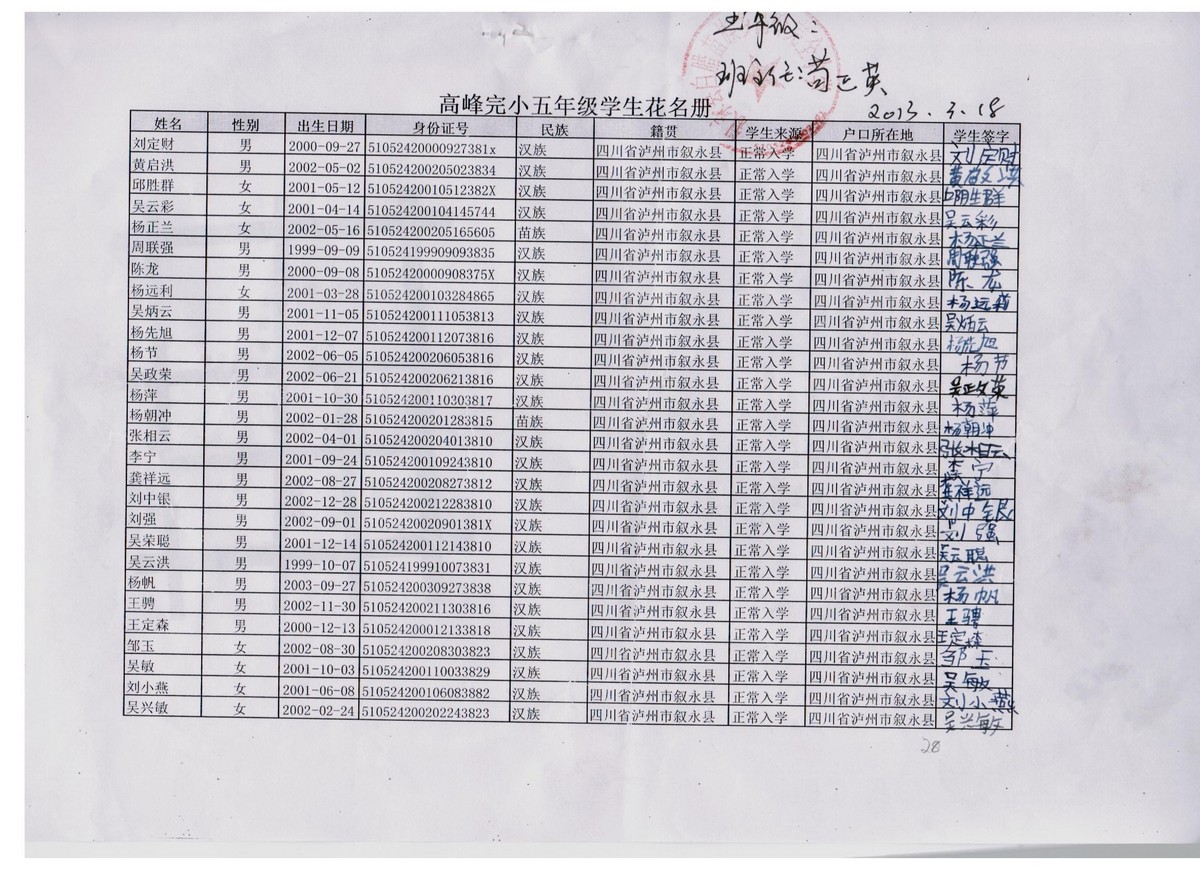 五年级:
班主任:
2013.3.18
高峰完小五年级学生花名册
姓名 性别 出生日期 身份证号 民族 籍贯 学生来源 户口所在地 学生签字
刘定财 男 2000-09-27 51052420000927381x 汉族 四川省泸州市叙永县 正常入学 四川省泸州市叙永县 刘定财
黄启洪 男 2002-05-02 510524200205023834 汉族 四川省泸州市叙永县 正常入学 四川省泸州市叙永县 黄启洪
邱胜群 女 2001-05-12 51052420010512382X 汉族 四川省泸州市叙永县 正常入学 四川省泸州市叙永县 邱胜群
吴云彩 女 2001-04-14 510524200104145744 汉族 四川省泸州市叙永县 正常入学 四川省泸州市叙永县 吴云彩
杨正兰 女 2002-05-16 510524200205165605 苗族 四川省泸州市叙永县 正常入学 四川省泸州市叙永县 杨正兰
周联强 男 1999-09-09 510524199909093835 汉族 四川省泸州市叙永县 正常入学 四川省泸州市叙永县 周联强
陈龙 男 2000-09-08 51052420000908375X 汉族 四川省泸州市叙永县 正常入学 四川省泸州市叙永县 陈龙
杨远利 女 2001-03-28 510524200103284865 汉族 四川省泸州市叙永县 正常入学 四川省泸州市叙永县 杨远
吴炳云 男 2001-11-05 510524200111053813 汉族 四川省泸州市叙永县 正常入学 四川省泸州市叙永县 吴炳云
杨先旭 男 2001-12-07 510524200112073816 汉族 四川省泸州市叙永县 正常入学 四川省泸州市叙永县 杨先旭
杨节 男 2002-06-05 510524200206053816 汉族 四川省泸州市叙永县 正常入学 四川省泸州市叙永县 杨节
吴政荣 男 2002-06-21 510524200206213816 汉族 四川省泸州市叙永县 正常入学 四川省泸州市叙永县 吴政
杨萍 男 2001-10-30 510524200110303817 汉族 四川省泸州市叙永县 正常入学 四川省泸州市叙永县 杨萍
杨朝冲 男 2002-01-28 510524200201283815 苗族 四川省泸州市叙永县 正常入学 四川省泸州市叙永县 杨朝冲
张相云 男 2002-04-01 510524200204013810 汉族 四川省泸州市叙永县 正常入学 四川省泸州市叙永县 张相云
李宁 男 2001-09-24 510524200109243810 汉族 四川省泸州市叙永县 正常入学 四川省泸州市叙永县 李宁
龚祥远 男 2002-08-27 510524200208273812 汉族 四川省泸州市叙永县 正常入学 四川省泸州市叙永县 龚祥远
刘中银 男 2002-12-28 510524200212283810 汉族 四川省泸州市叙永县 正常入学 四川省泸州市叙永县 刘中银
刘强 男 2002-09-01 51052420020901381X 汉族 四川省泸州市叙永县 正常入学 四川省泸州市叙永县 刘强
吴荣聪 男 2001-12-14 510524200112143810 汉族 四川省泸州市叙永县 正常入学 四川省泸州市叙永县 吴云聪
吴云洪 男 1999-10-07 510524199910073831 汉族 四川省泸州市叙永县 正常入学 四川省泸州市叙永县 吴云洪
杨帆 男 2003-09-27 510524200309273838 汉族 四川省泸州市叙永县 正常入学 四川省泸州市叙永县 杨帆
王骋 男 2002-11-30 510524200211303816 汉族 四川省泸州市叙永县 正常入学 四川省泸州市叙永县 王骋
王定森 男 2000-12-13 510524200012133818 汉族 四川省泸州市叙永县 正常入学 四川省泸州市叙永县 王定森
邹玉 女 2002-08-30 510524200208303823 汉族 四川省泸州市叙永县 正常入学 四川省泸州市叙永县 邹玉
吴敏 女 2001-10-03 510524200110033829 汉族 四川省泸州市叙永县 正常入学 四川省泸州市叙永县 吴敏
刘小燕 女 2001-06-08 510524200106083882 汉族 四川省泸州市叙永县 正常入学 四川省泸州市叙永县 刘小燕
吴兴敏 女 2002-02-24 510524200202243823 汉族 四川省泸州市叙永县 正常入学 四川省泸州市叙永县 吴兴敏
28